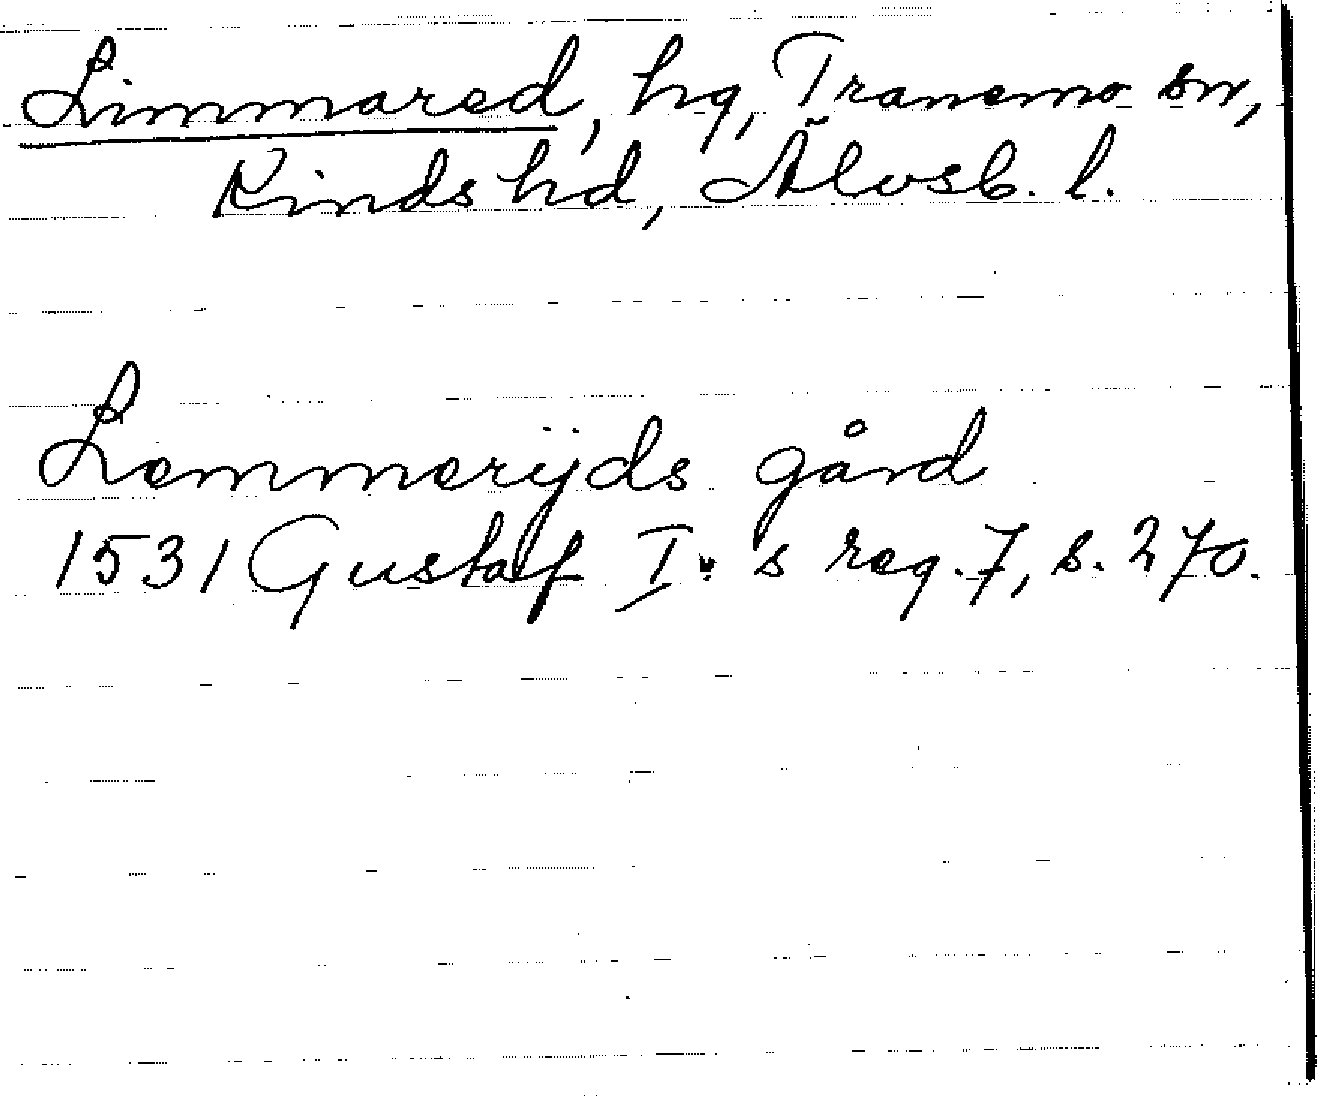 Limmared, hg, Tranemo sn,
Kinds hd, Älvsb. l.
Lemmerijds gård
1531 Gustaf I:s reg. 7, s. 270.